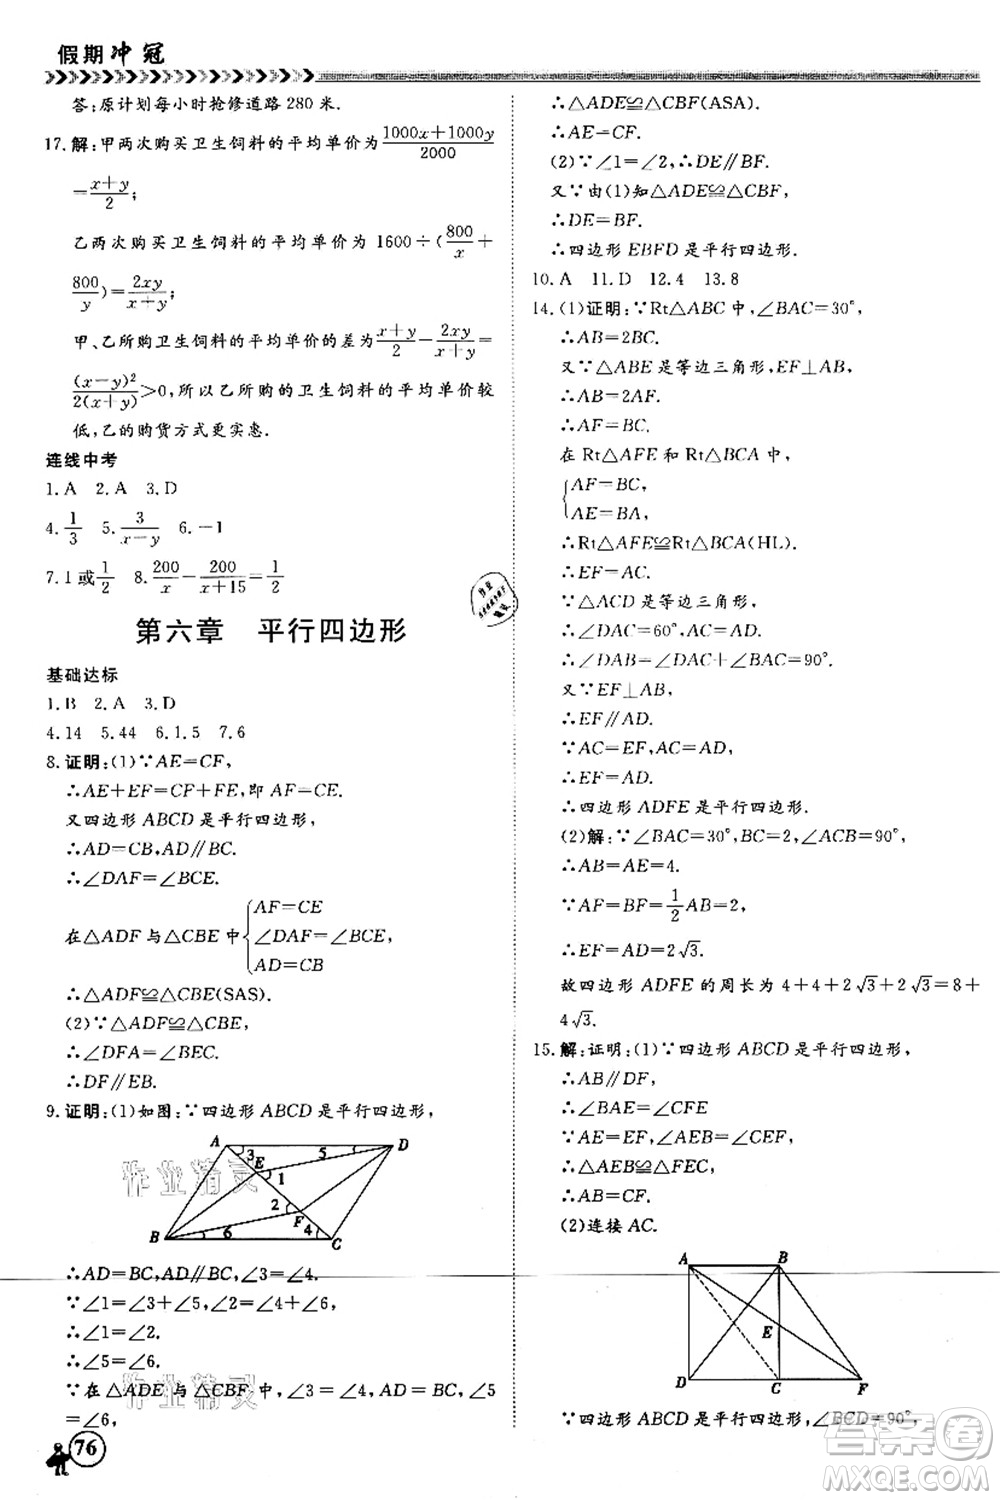 假期冲冠
答:原计划每小时抢修道路 280 米.
17.解:甲两次购买卫生饲料的平均单价为 (1000x+1000y)/2000
=(x+y)/2;
乙两次购买卫生饲料的平均单价为 1600÷(800/x+
800/y)=2xy/(x+y);
甲、乙所购卫生饲料的平均单价的差为 (x+y)/2-2xy/(x+y)=
(x-y)²/2(x+y)>0,所以乙所购的卫生饲料的平均单价较
低,乙的购货方式更实惠.
连线中考
1.A 2.A 3.D
4.1/3 5.3/(x-y) 6.-1
7.1或1/2 8.200/x-200/(x+15)=1/2
第六章 平行四边形
基础达标
1.B 2.A 3.D
4.14 5.44 6.1.5 7.6
8.证明:(1)∵AE=CF,
∴AE+EF=CF+FE,即 AF=CE.
又四边形 ABCD 是平行四边形,
∴AD=CB,AD∥BC.
∴∠DAF=∠BCE.
在△ADF 与△CBE 中{AF=CE
∠DAF=∠BCE,
AD=CB
∴△ADF≌△CBE(SAS).
(2)∵△ADF≌△CBE,
∴∠DFA=∠BEC.
∴DF∥EB.
9.证明:(1)如图:∵四边形 ABCD 是平行四边形,
A 3 5 D
E 1
2 F
B 6 4 C
∴AD=BC,AD∥BC,∴∠3=∠4.
∵∠1=∠3+∠5,∠2=∠4+∠6,
∴∠1=∠2.
∴∠5=∠6.
∵在△ADE 与△CBF 中,∠3=∠4,AD=BC,∠5
=∠6,
76
∴△ADE≌△CBF(ASA).
∴AE=CF.
(2)∵∠1=∠2,∴DE∥BF.
又∵由(1)知△ADE≌△CBF,
∴DE=BF.
∴四边形 EBFD 是平行四边形.
10.A 11.D 12.4 13.8
14.(1)证明:∵Rt△ABC 中,∠BAC=30°,
∴AB=2BC.
又∵△ABE 是等边三角形,EF⊥AB,
∴AB=2AF.
∴AF=BC.
在 Rt△AFE 和 Rt△BCA 中,
{AF=BC,
AE=BA,
∴Rt△AFE≌Rt△BCA(HL).
∴EF=AC.
∵△ACD 是等边三角形,
∴∠DAC=60°,AC=AD.
∴∠DAB=∠DAC+∠BAC=90°.
又∵EF⊥AB,
∴EF∥AD.
∵AC=EF,AC=AD,
∴EF=AD.
∴四边形 ADFE 是平行四边形.
(2)解:∵∠BAC=30°,BC=2,∠ACB=90°,
∴AB=AE=4.
∵AF=BF=1/2AB=2,
∴EF=AD=2√3.
故四边形 ADFE 的周长为 4+4+2√3+2√3=8+
4√3.
15.解:证明:(1)∵四边形 ABCD 是平行四边形,
∴AB∥DF.
∴∠BAE=∠CFE
∵AE=EF,∠AEB=∠CEF,
∴△AEB≌△FEC,
∴AB=CF.
(2)连接 AC.
A B
E
D C F
∵四边形 ABCD 是平行四边形,∠BCD=90°,
作业精灵
作业精灵
答案圈
MXQE.COM